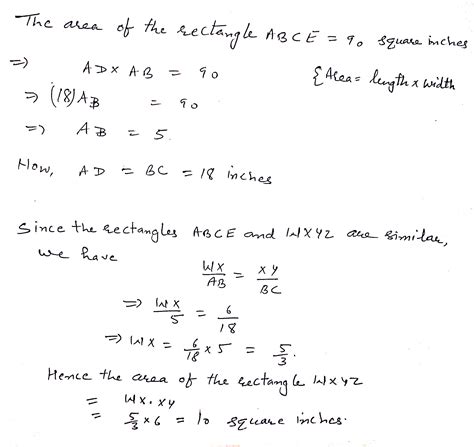 The area of the rectangle ABCE = 90 square inches
⇒ AD × AB = 90 {Area = length × width
⇒ (18)AB = 90
⇒ AB = 5
Now, AD = BC = 18 inches
Since the rectangles ABCE and WXYZ are similar,
we have
WX/AB = XY/BC
⇒ WX/5 = 6/18
⇒ WX = 6/18 × 5 = 5/3.
Hence the area of the rectangle WXYZ
= WX. XY
= 5/3 × 6 = 10 square inches.